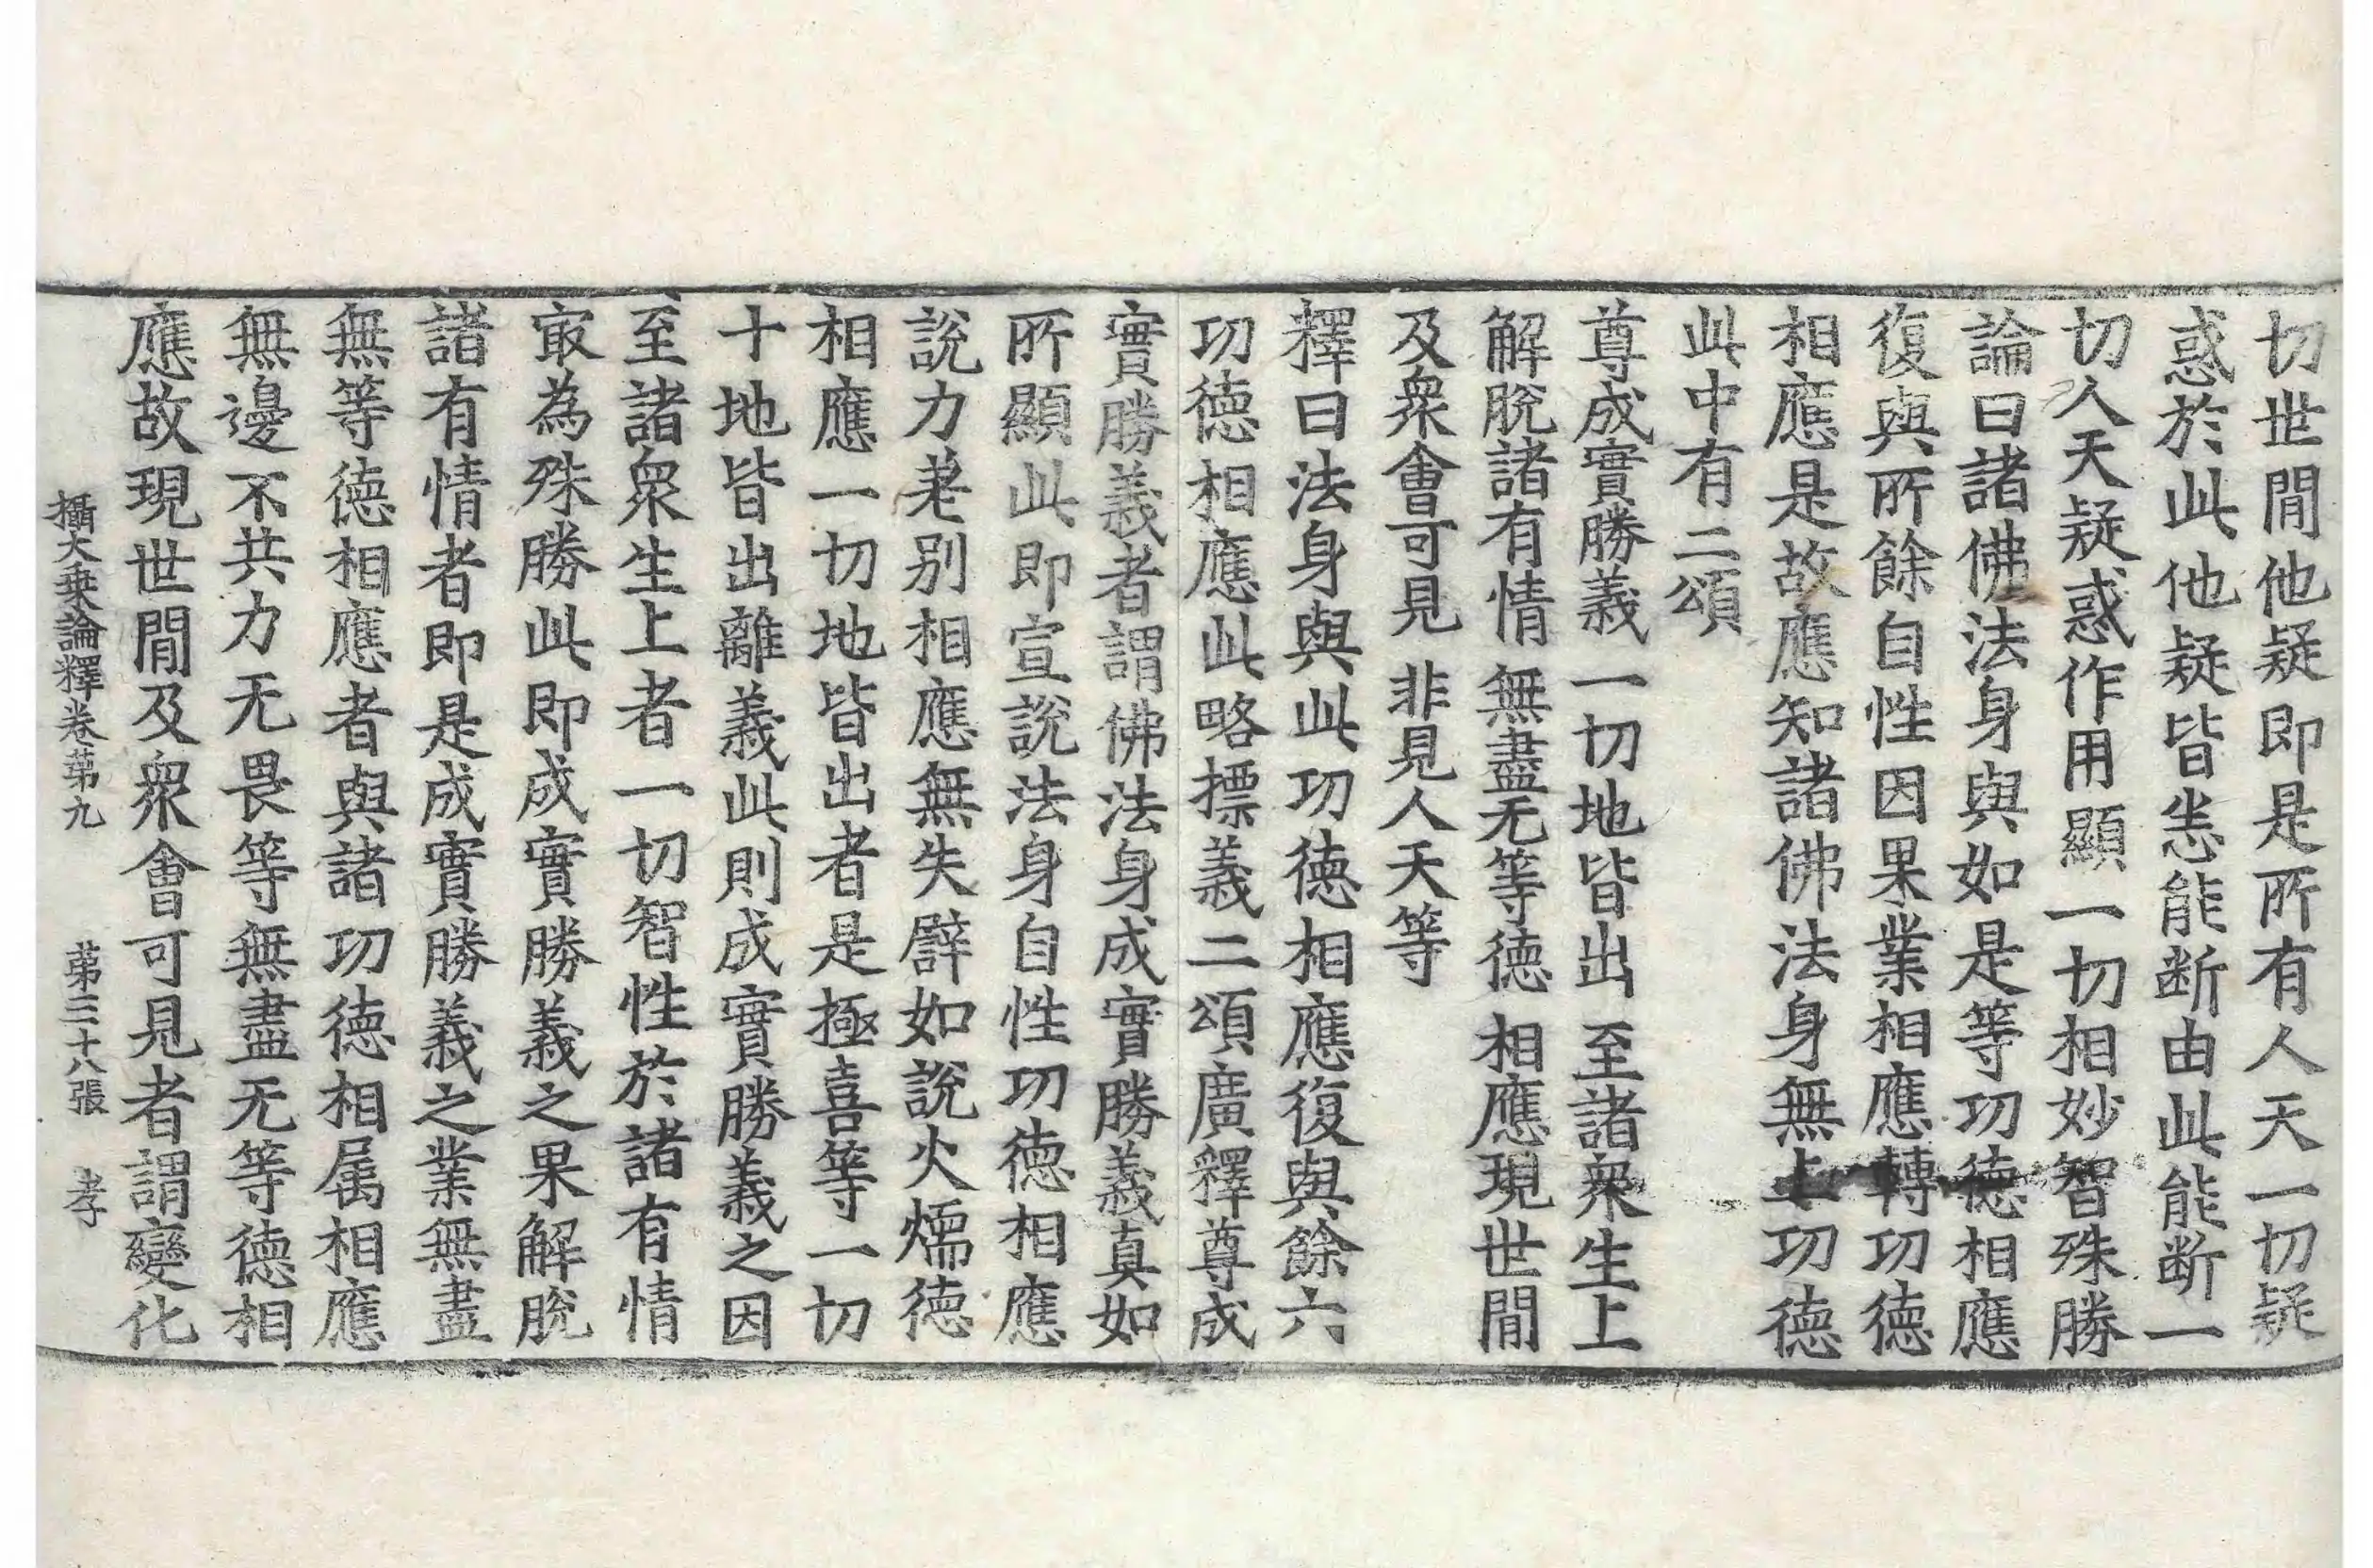 切世間他疑即是所有人天一切疑
惑於此他疑皆恙能断由此能断一
切人天疑惑作用顯一切相妙智殊勝
論曰諸佛法身與如是等功德相應
復與所餘自性因果業相應轉功德
相應是故應知諸佛法身無上功德
此中有二頌
尊成實勝義 一切地皆出 至諸衆生上
解脫諸有情 無盡无等德 相應現世間
及衆會可見 非見人天等
釋曰法身與此功德相應復與餘六
功德相應此略摽義二頌廣釋尊成
實勝義者謂佛法身成實勝義真如
所顯此即宣說法身自性功德相應
說力差别相應無失譬如說火煗德
相應一切地皆出者是極喜等一切
十地皆出離義此則成實勝義之因
至諸衆生上者一切智性於諸有情
㝡為殊勝此即成實勝義之果解脫
諸有情者即是成實勝義之業無盡
無等德相應者與諸功德相属相應
無邊不共力无畏等無盡无等德相
應故現世間及衆會可見者謂變化
攝大乗論釋卷苐九 苐三十八張 孝